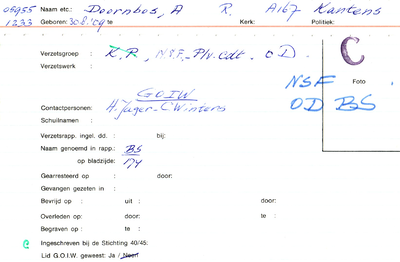 05955 Naam etc.: Doornbos, A R. A167 Kantens
1233 Geboren: 30.8.'09 te Kerk: Politiek:
C
Verzetsgroep : K.P., N.S.F.-Plv.Cdt. O.D.
Verzetswerk :
NSF Foto
OD BS
G.O.I.W
Contactpersonen: H. Jager - C. Winters
Schuilnaam :
Verzetsrapp. ingel. dd. : bij:
Naam genoemd in rapp.: BS
op bladzijde: 174
Gearresteerd op : door:
Gevangen gezeten in :
Bevrijd op : uit : door:
Overleden op: door: te :
Begraven op : te :
C Ingeschreven bij de Stichting 40/45:
Lid G.O.I.W. geweest: Ja / Neen